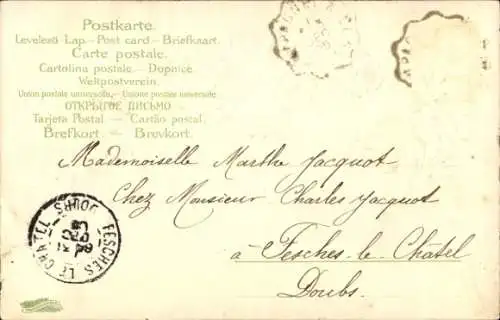 Postkarte.
Levelező Lap.—Post card—Briefkaart.
Carte postale.
Cartolina postale.—Dopnice.
Weltpostverein.
Union postale universelle.—Unione postale universale
ОТКРЫТОЕ ПИСЬМО
Tarjeta Postal — Cartão postal.
Brefkort — Brevkort.
Mademoiselle Marthe Jacquot
Chez Monsieur Charles Jacquot
à Fesches-le-Chatel
Doubs.
FESCHES LE CHATEL DOUBS